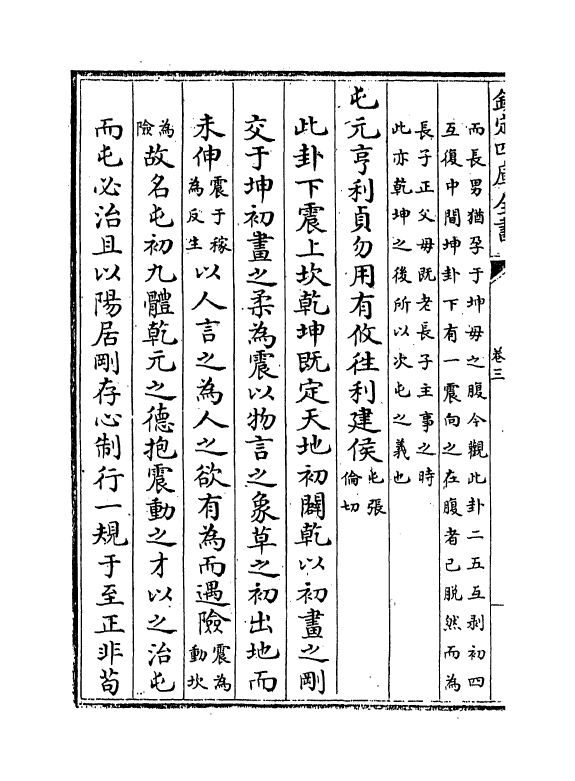 欽定四庫全書
卷三
而長男猶孕于坤母之腹今觀此卦二五互剥初四
互復中間坤卦下有一震向之在腹者已脱然而為
長子正父母既老長子主事之時
此亦乾坤之後所以次屯之義也
屯元亨利貞勿用有攸往利建侯屯張
倫切
此卦下震上坎乾坤既定天地初闢乾以初畫之剛
交于坤初畫之柔為震以物言之象草之初出地而
未伸震于稼
為反生以人言之為人之欲有為而遇險震為
動坎
為
險故名屯初九體乾元之德抱震動之才以之治屯
而屯必治且以陽居剛存心制行一規于至正非苟